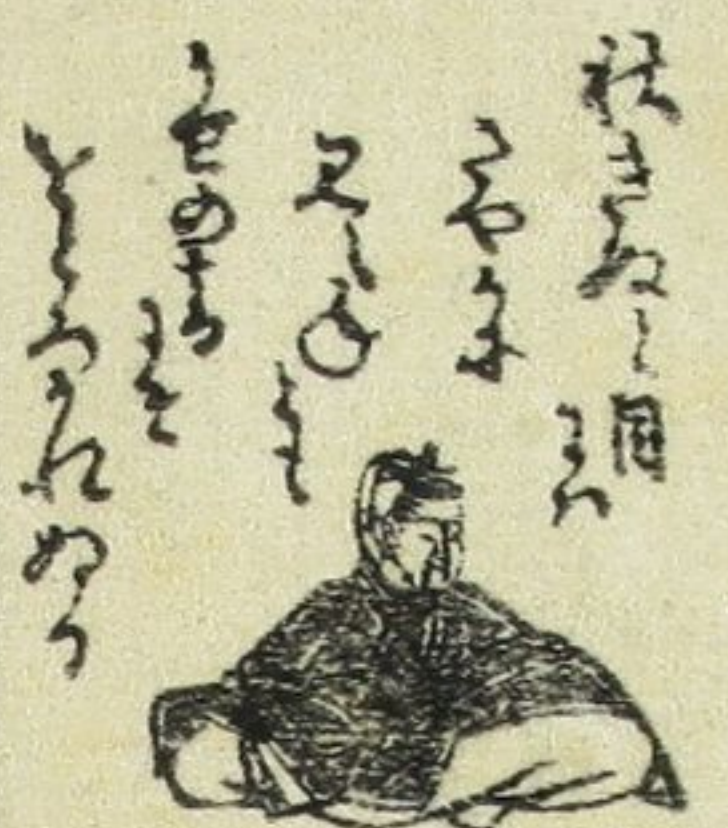 秋きぬと目
には
さやかに
見えね
とも
かせのおと
にそ
おとろかれぬる